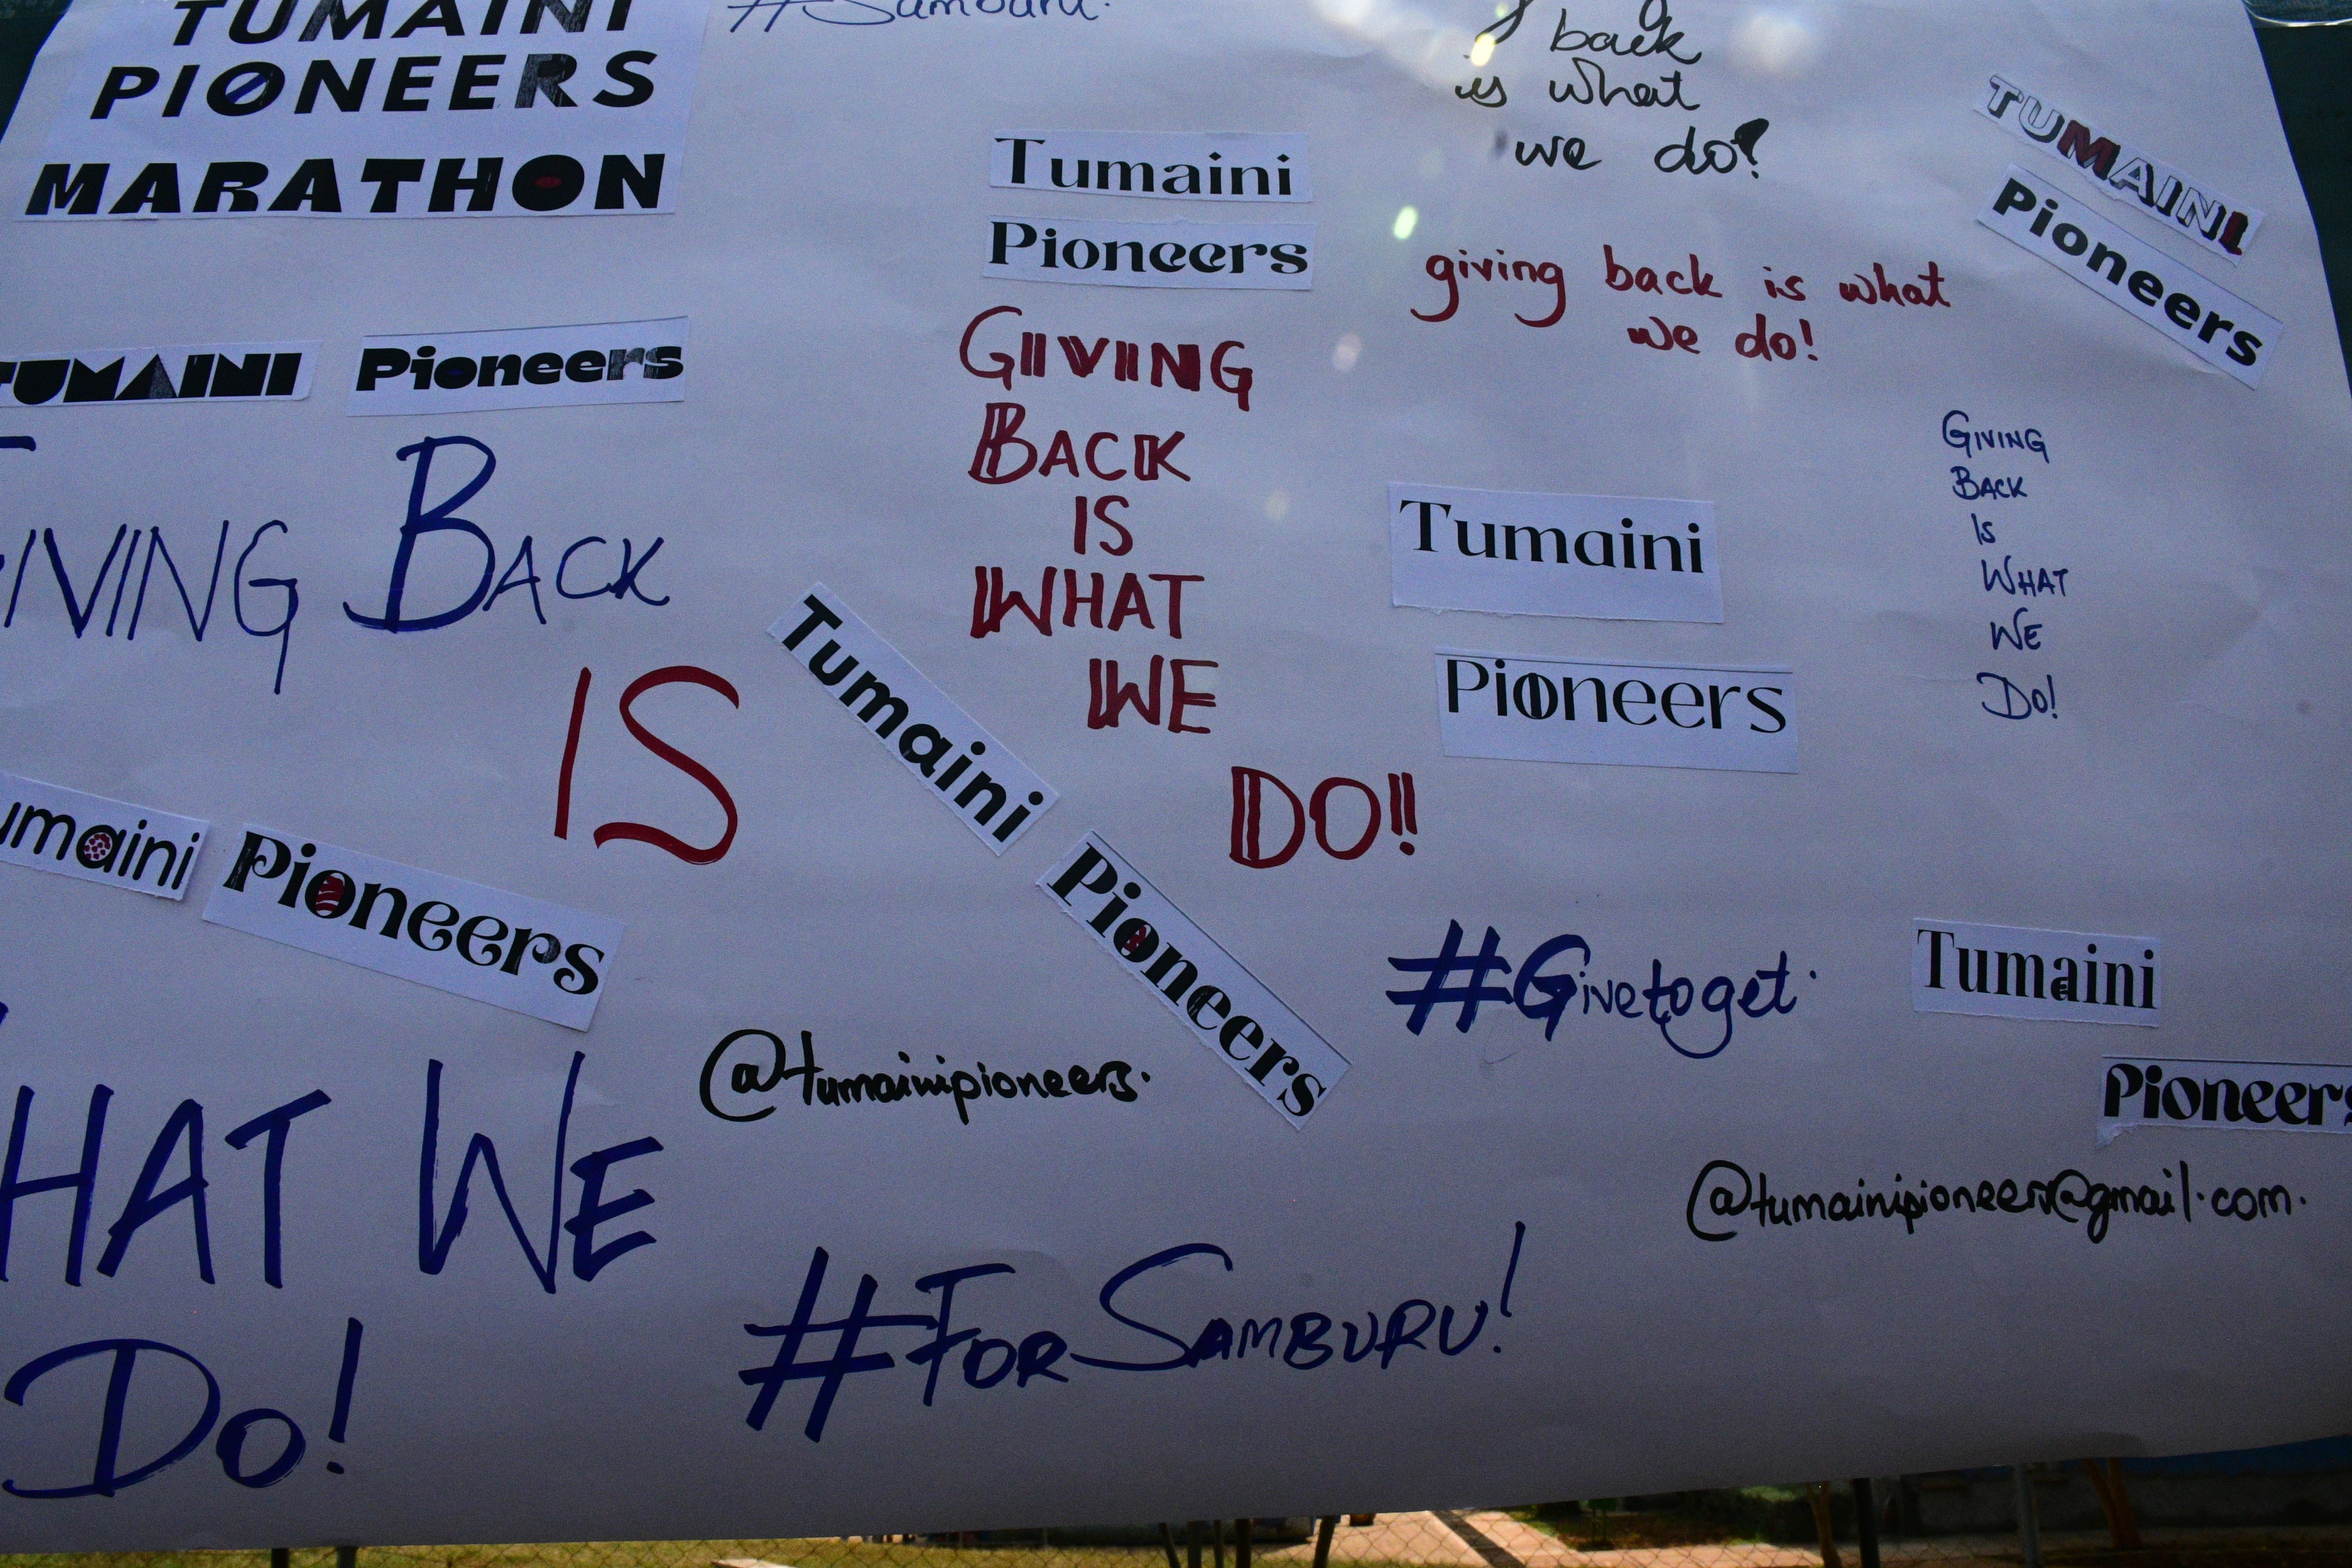 TUMAINI
PIONEERS
MARATHON
#Samburu.
back
is what
we do!
Tumaini
Pioneers
TUMAINI
Pioneers
giving back is what
we do!
TUMAINI Pioneers
GIVING
BACK
IS
WHAT
WE
DO!!
GIVING BACK
IS
Tumaini
Pioneers
Tumaini
Pioneers
GIVING
BACK
IS
WHAT
WE
DO!
umaini Pioneers
#Givetoget.
Tumaini
Pioneers
HAT WE
DO!
@tumainipioneers.
@tumainipioneers@gmail.com.
#FORSAMBURU!